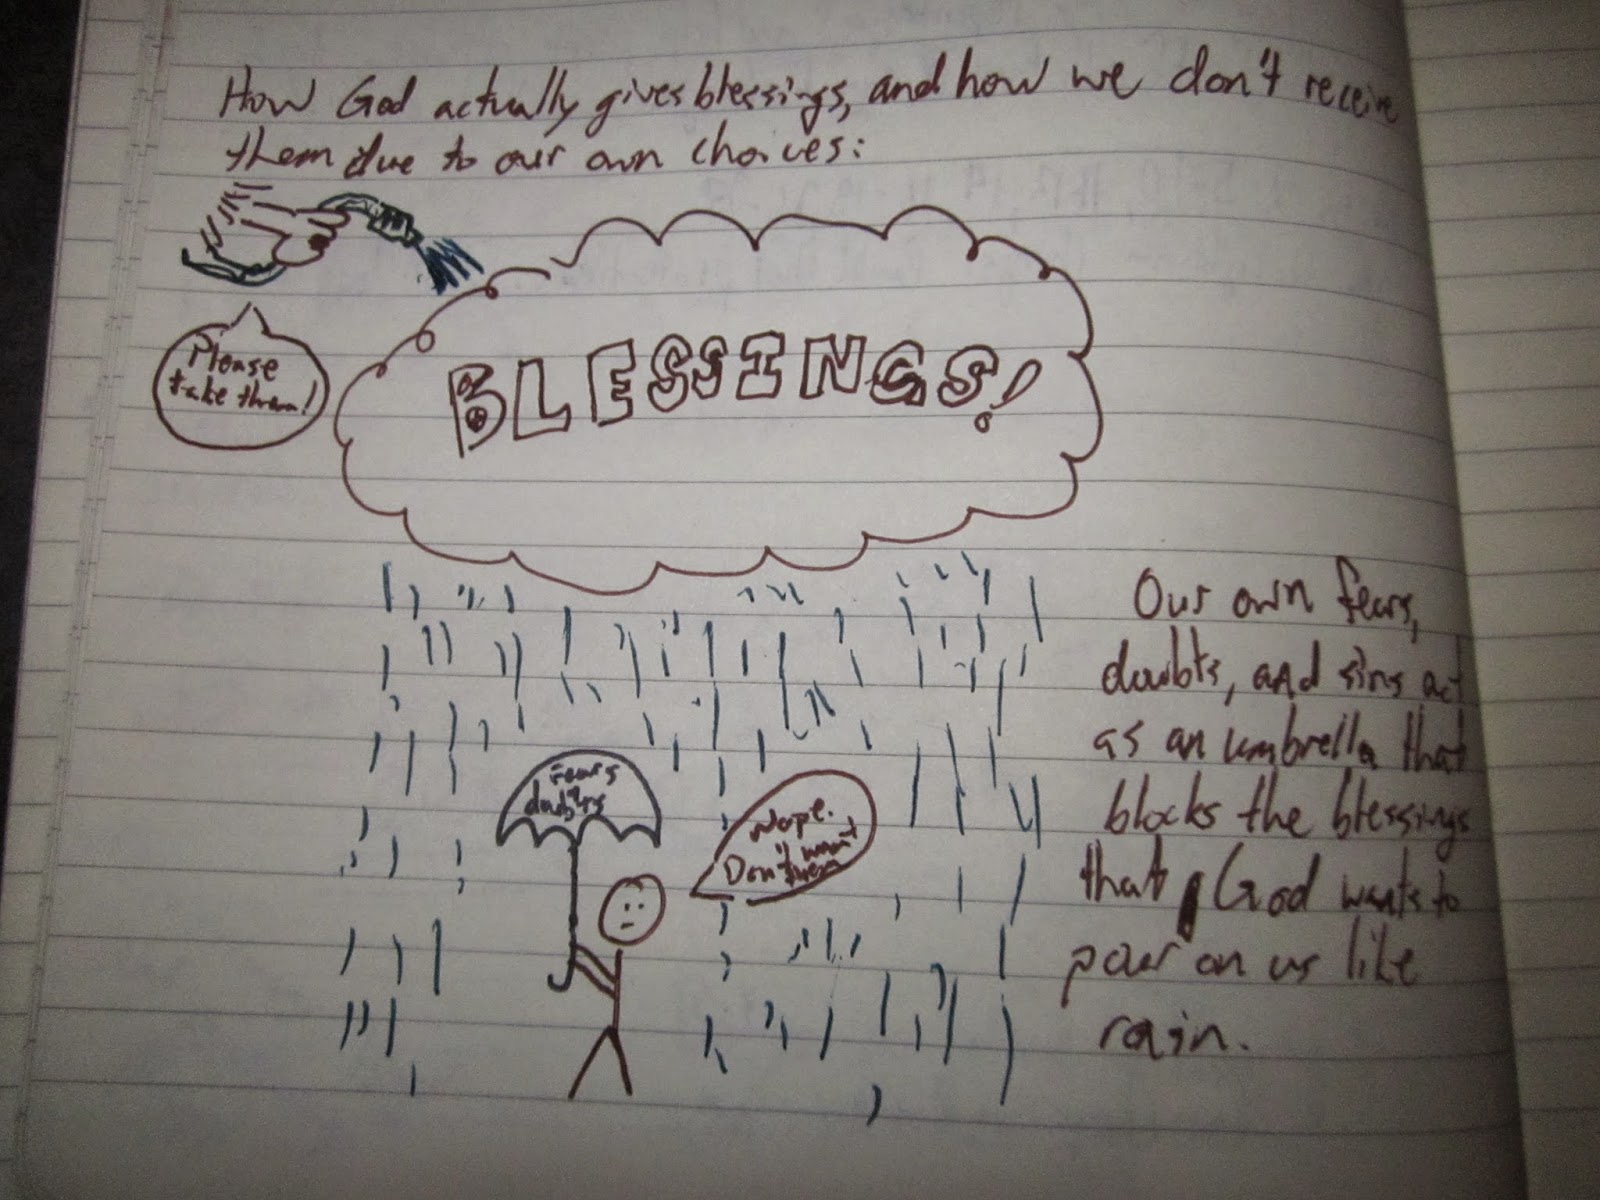 How God actually gives blessings, and how we don't receive
them due to our own choices:
Please
take them!
BLESSINGS!
Our own fears,
doubts, and sins act
as an umbrella that
blocks the blessings
that God wants to
pour on us like
rain.
Fears
doubts
Nope.
Don't want
them